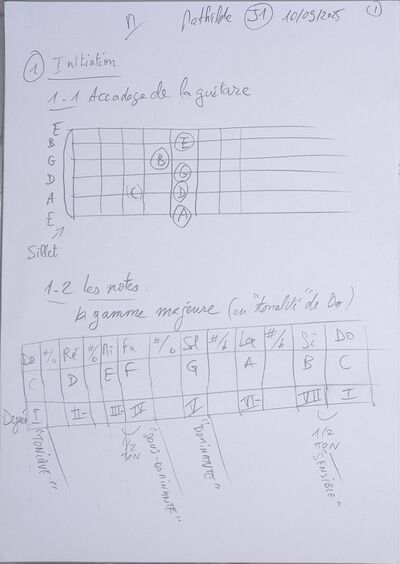 Mathilde J1 10/09/2025 1
1 Initiation
1-1 Accordage de la guitare
E
B E
G B
D G
A C D
E A
Sillet
1-2 Les notes
la gamme majeure (en "tonalité" de Do)
Do #/b Ré #/b Mi Fa #/b Sol #/b La #/b Si Do
C D E F G A B C
Degré I II III IV V VI VII I
1/2 TON 1/2 TON
"TONIQUE" "SOUS-DOMINANTE" "DOMINANTE" "SENSIBLE"